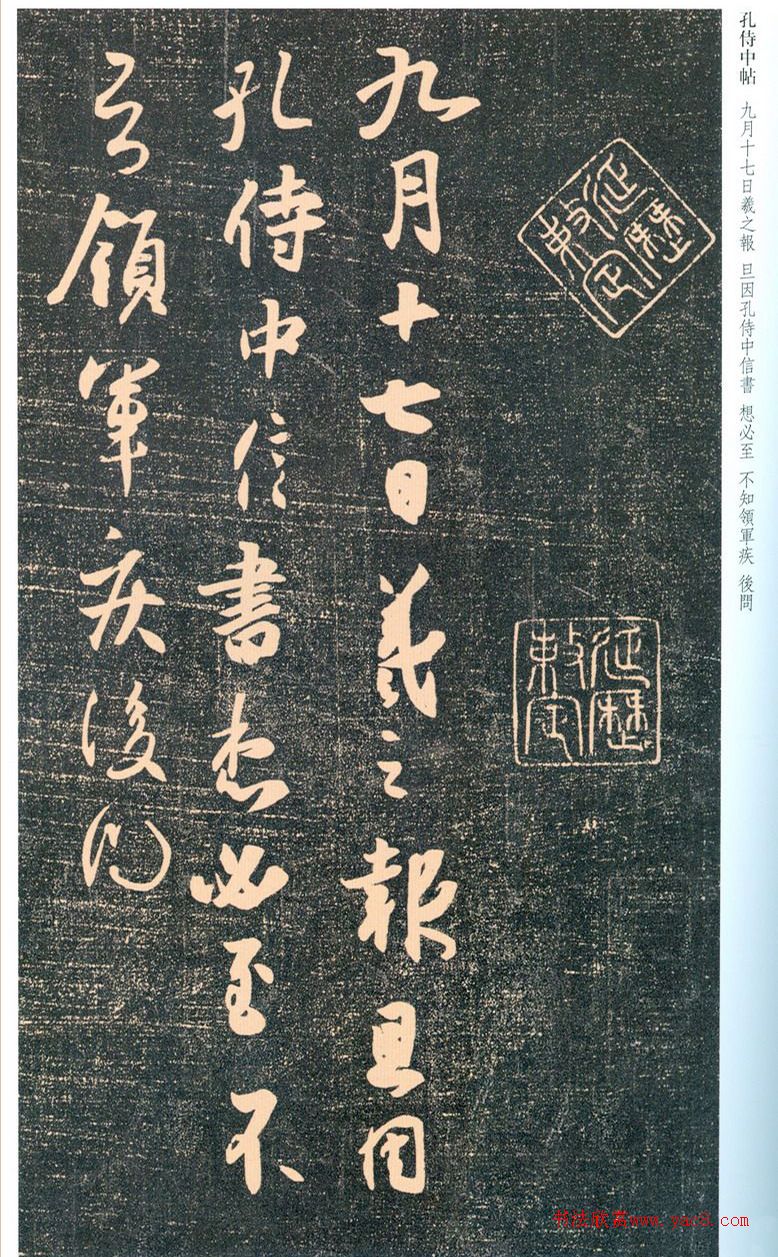 孔侍中帖 九月十七日羲之報 旦因孔侍中信書 想必至 不知領軍疾 後問
延曆
敕定
延曆
敕定
九月十七日羲之報旦因
孔侍中信書想必至不
知領軍疾後問
书法欣赏www.yac8.com